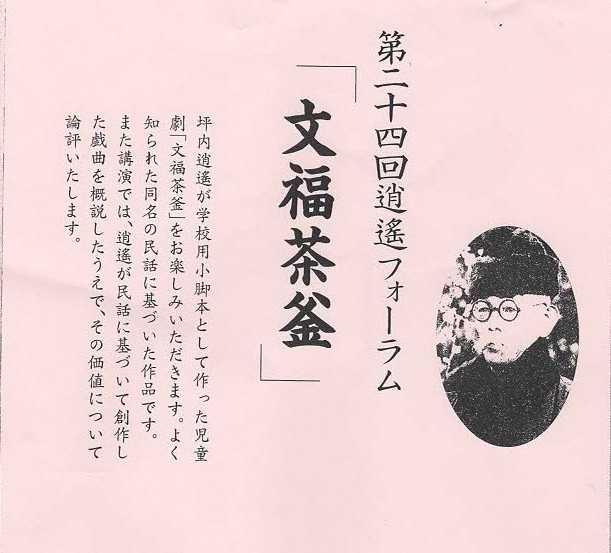 第二十四回逍遙フォーラム
「文福茶釜」
坪内逍遙が学校用小脚本として作った児童
劇「文福茶釜」をお楽しみいただきます。よく
知られた同名の民話に基づいた作品です。
また講演では、逍遙が民話に基づいて創作し
た戯曲を概説したうえで、その価値について
論評いたします。